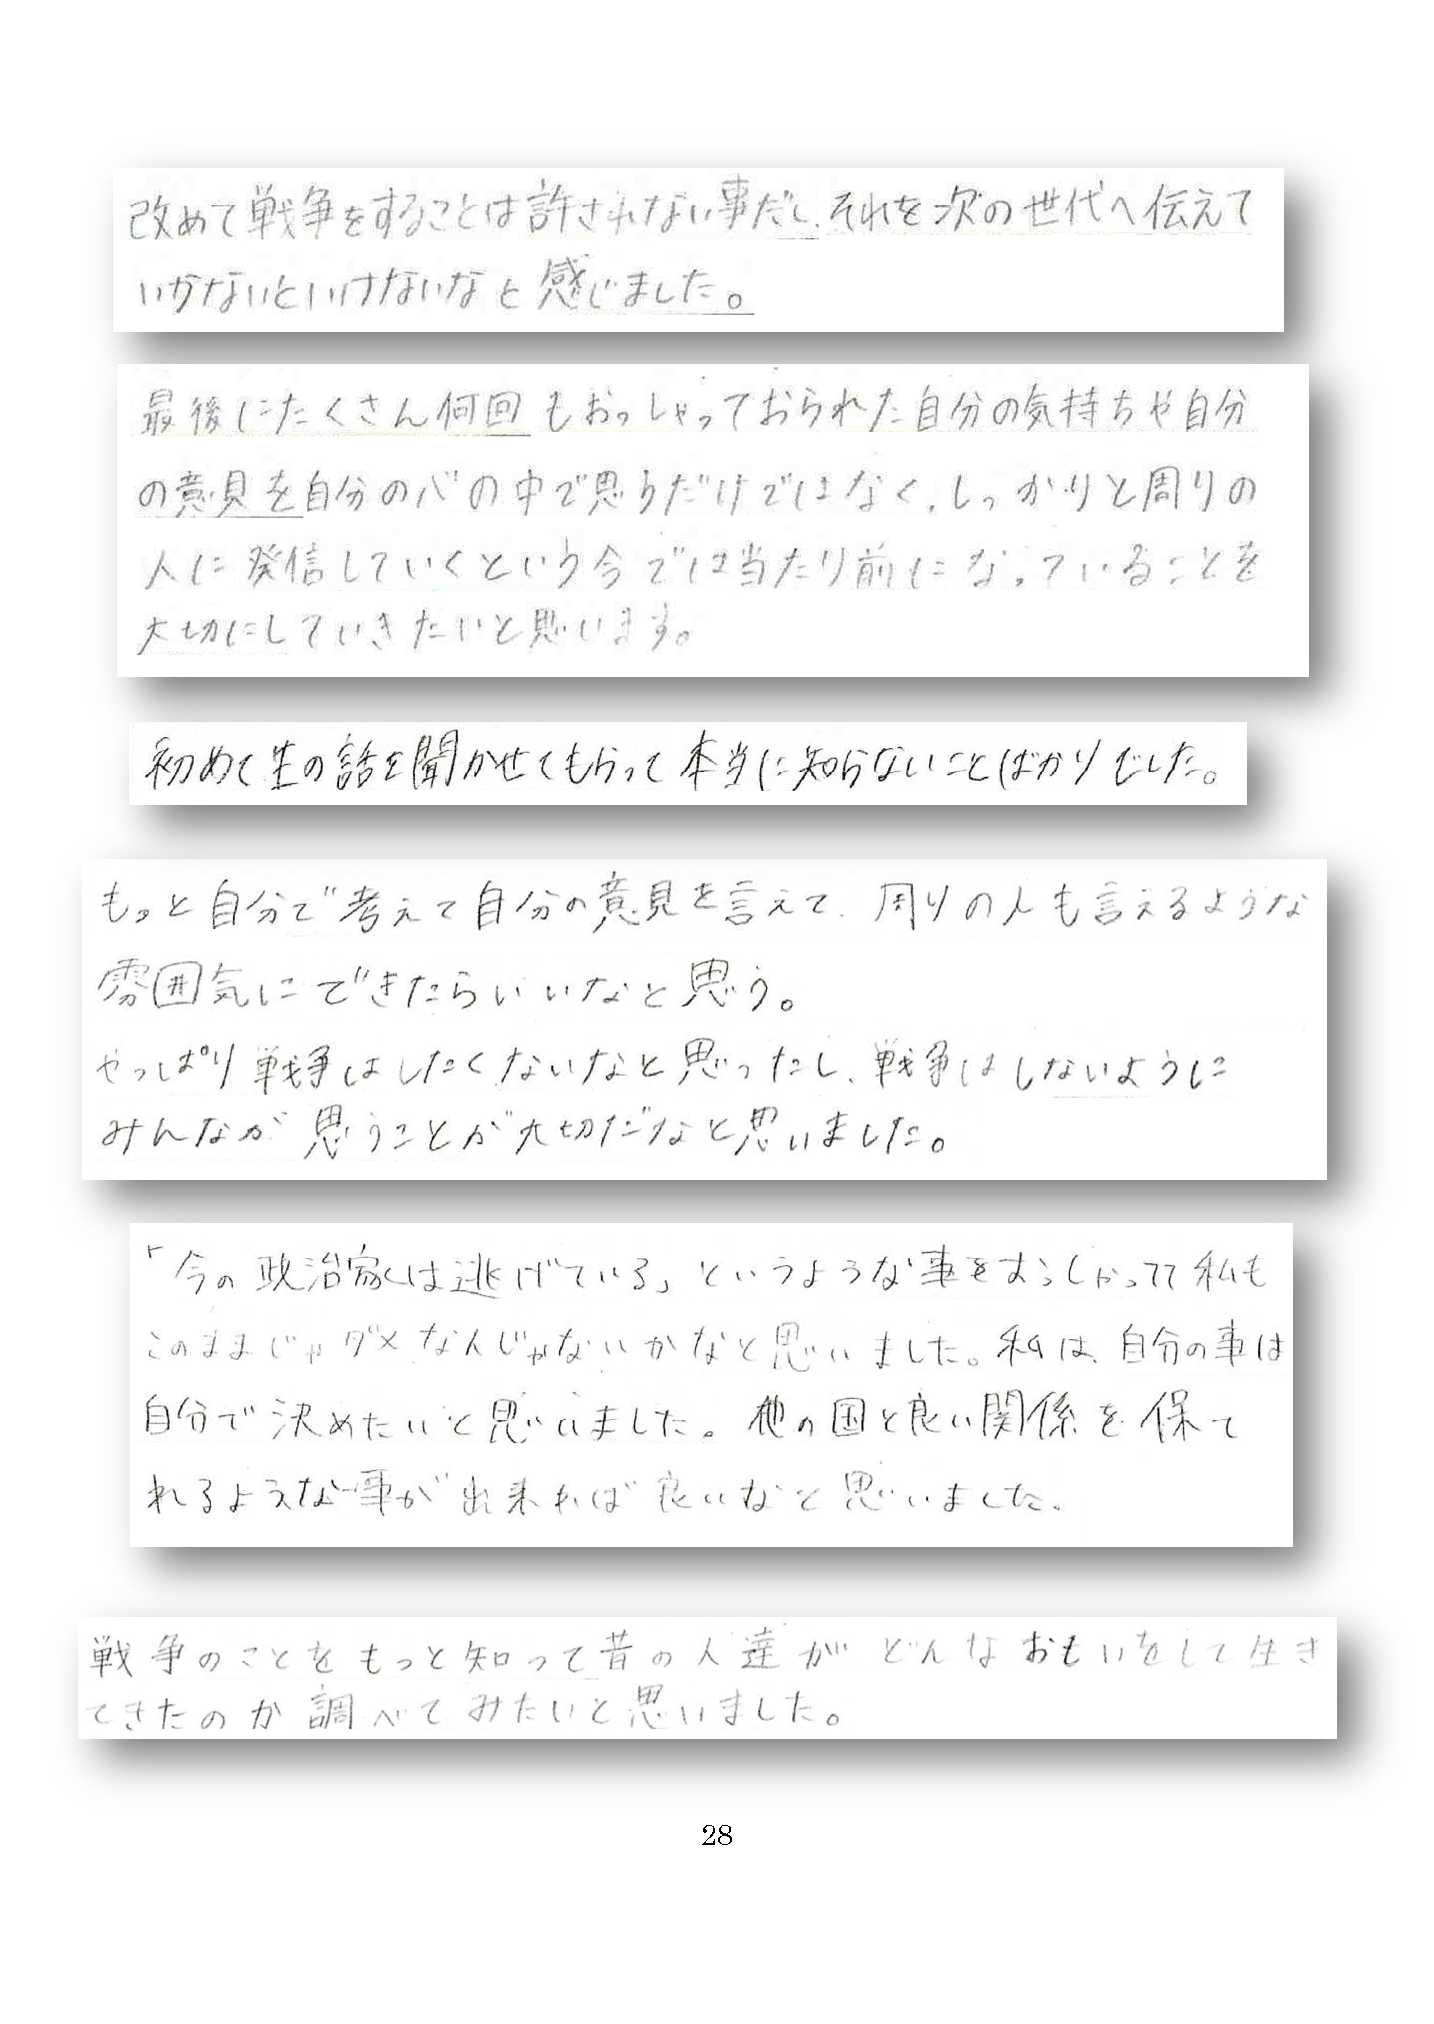 改めて戦争をすることは許されない事だし、それを次の世代へ伝えて
いかないといけないなと感じました。
最後にたくさん何回もおっしゃっておられた自分の気持ちや自分
の意見を自分の心の中で思うだけではなく、しっかりと周りの
人に発信していくという今では当たり前になっていることを
大切にしていきたいと思います。
初めて生の話を聞かせてもらって本当に知らないことばかりでした。
もっと自分で考えて自分の意見を言えて、周りの人も言えるような
雰囲気にできたらいいなと思う。
やっぱり戦争はしたくないなと思ったし、戦争はしないように
みんなが思うことが大切だなと思いました。
「今の政治家は逃げている」というような事をおっしゃってて私も
このままじゃダメなんじゃないかなと思いました。私は、自分の事は
自分で決めたいと思いました。他の国と良い関係を保て
れるような事が出来れば良いなと思いました。
戦争のことをもっと知って昔の人達がどんなおもいをして生き
てきたのか調べてみたいと思いました。
28